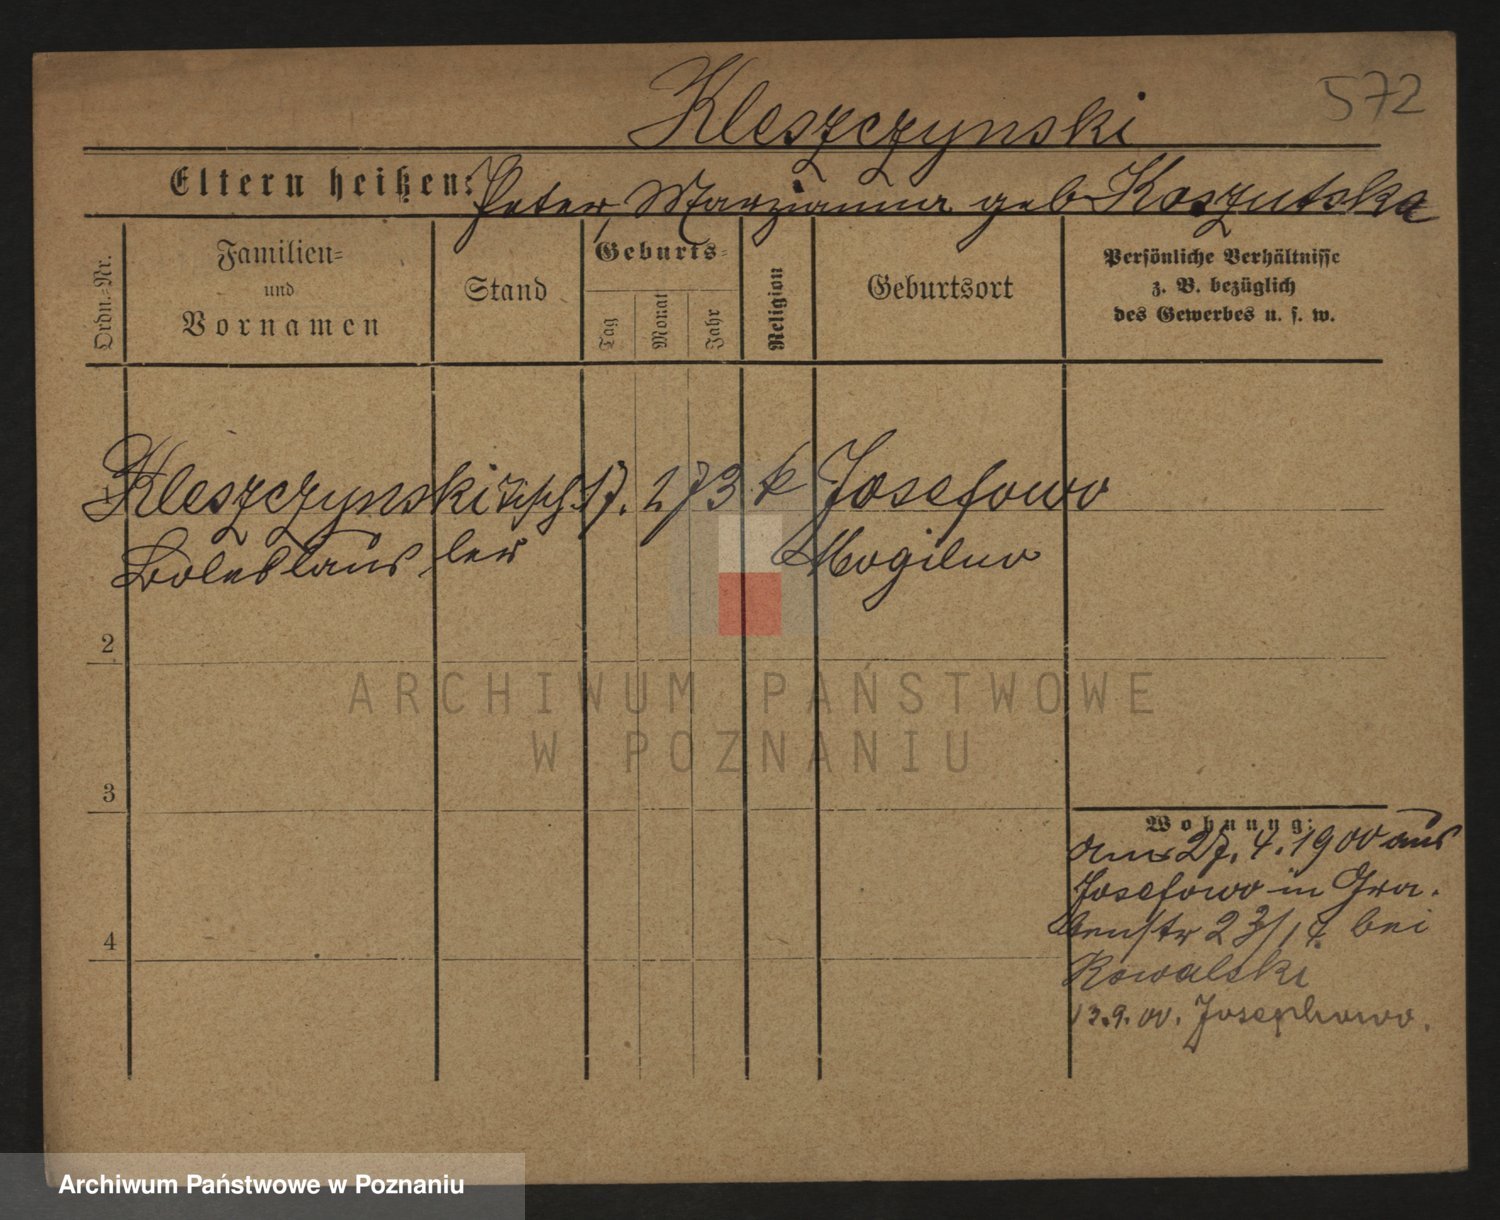 572
Kleszczynski
Eltern heißen: Peter, Marzianna geb Koszutska
Ordn.-Nr.
Familien-
und
Vornamen
Stand
Geburts-
Tag
Monat
Jahr
Religion
Geburtsort
Persönliche Verhältnisse
z. B. bezüglich
des Gewerbes u. s. w.
Kleszczynski Tisch 17. 2 73 k Josefowo
Boleslaus ler Mogilno
2
3
4
Wohnung:
am 27. 4. 1900 aus
Josefowo in Gra-
benstr 23/14 bei
Kowalski
13.9.00. Josephowo.
ARCHIWUM PAŃSTWOWE
W POZNANIU
Archiwum Państwowe w Poznaniu